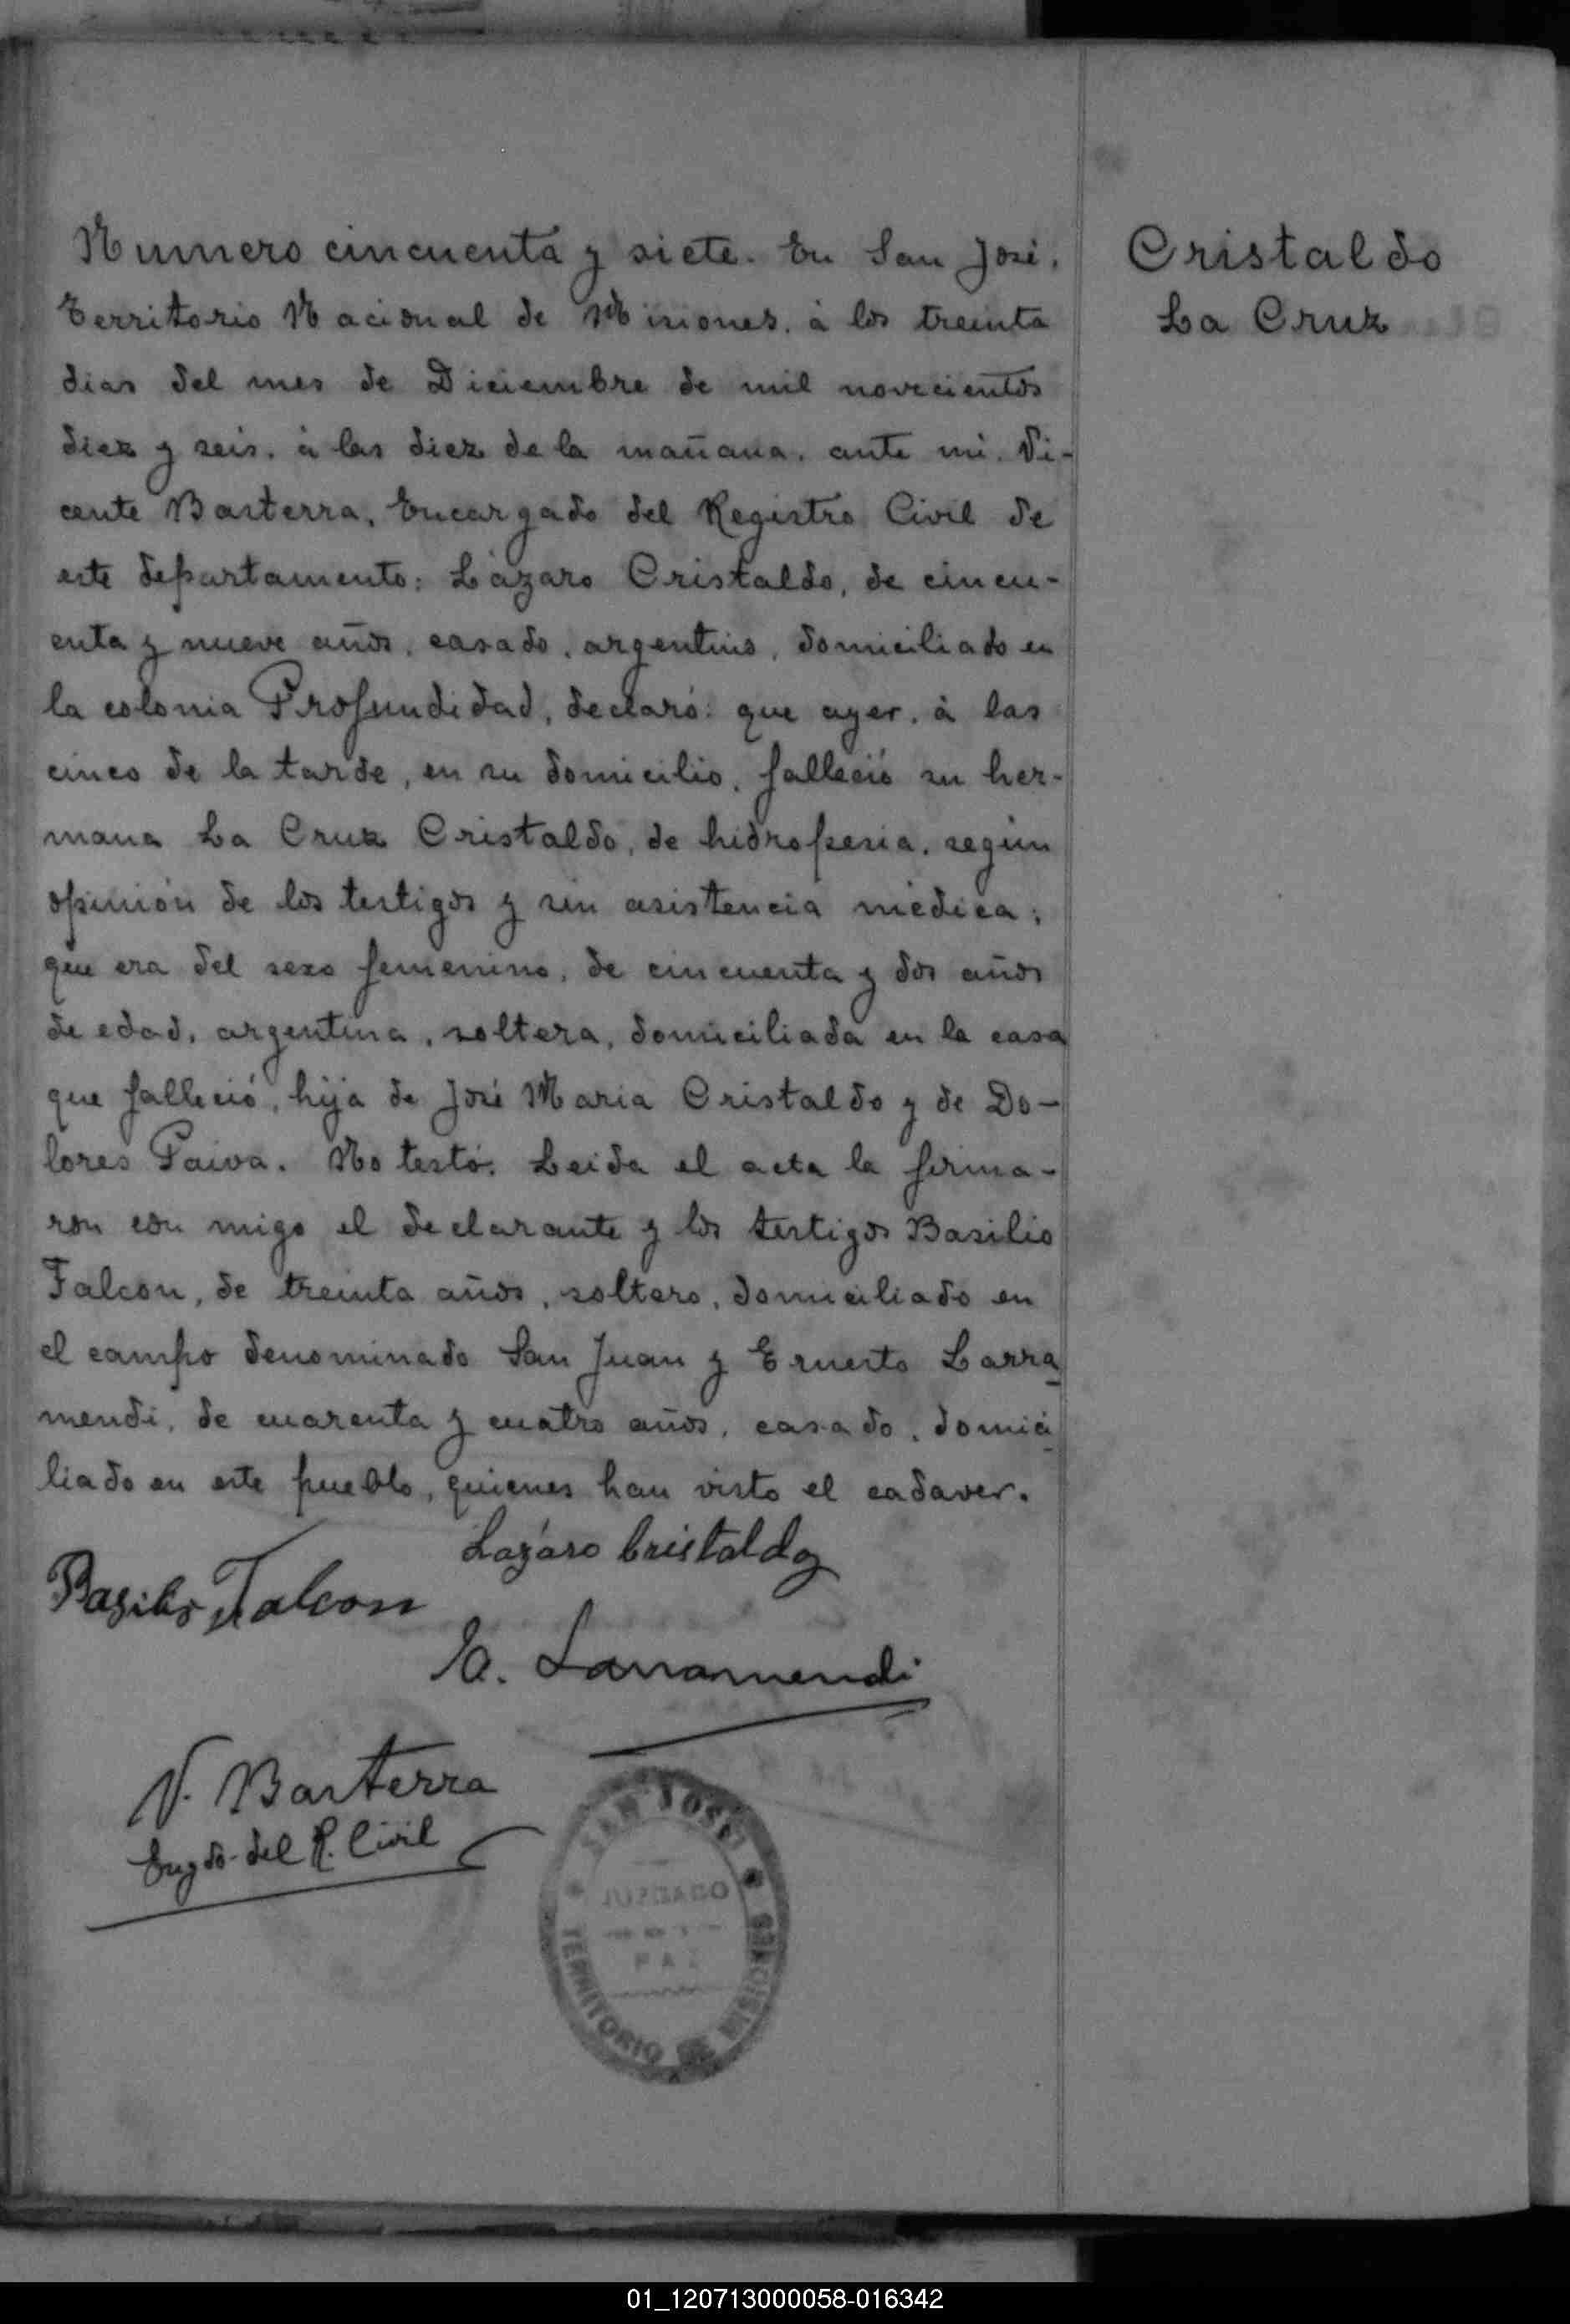 Numero cincuenta y siete. En San José,
Territorio Nacional de Misiones, à los treinta
dias del mes de Diciembre de mil novecientos
diez y seis, à las diez de la mañana, ante mi, Vi-
cente Basterra, Encargado del Registro Civil de
este departamento: Lázaro Cristaldo, de cincu-
enta y nueve años, casado, argentino, domiciliado en
la colonia Profundidad, declaró: que ayer, à las
cinco de la tarde, en su domicilio, falleció su her-
mana La Cruz Cristaldo, de hidropesia, según
opinión de los testigos y sin asistencia médica;
que era del sexo femenino, de cincuenta y dos años
de edad, argentina, soltera, domiciliada en la casa
que falleció, hija de José Maria Cristaldo y de Do-
lores Paiva. No testó. Leida el acta la firma-
ron con migo el declarante y los testigos Basilio
Falcon, de treinta años, soltero, domiciliado en
el campo denominado San Juan y Ernesto Larra
mendi, de cuarenta y cuatro años, casado, domici
liado en este pueblo, quienes han visto el cadaver.
Lazáro Cristaldo
Basilio Falcon
E. Larramendi
V. Basterra
Engdo. del R. Civil
SAN JOSÉ
JUZGADO
PAZ
TERRITORIO DE MISIONES
Cristaldo
La Cruz
01_120713000058-016342